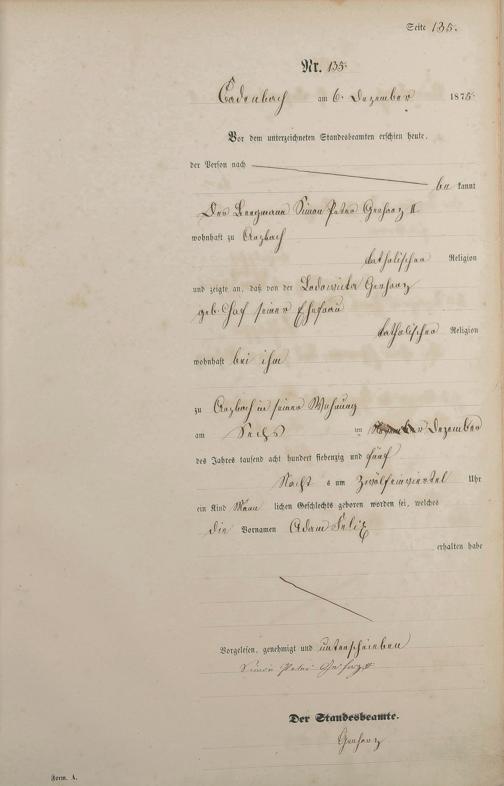 Seite 135.
Nr. 135.
Cadenbach am 6. Dezember 1875.
Vor dem unterzeichneten Standesbeamten erschien heute,
der Person nach
be kannt
Der Bergmann Simon Peter Gerharz II
wohnhaft zu Arzbach
katholischer Religion
und zeigte an, daß von der Gerharz
geb. seiner Ehefrau
katholischer Religion
wohnhaft bei ihm
zu Arzbach in seiner Wohnung
am Sechs im Dezember
des Jahres tausend acht hundert siebenzig und fünf
Nacht s um Zwölfeinviertel Uhr
ein Kind Männ lichen Geschlechts geboren worden sei, welches
die Vornamen Adam Felix
erhalten habe
Vorgelesen, genehmigt und unterschrieben
Simon Peter Gerharz II
Der Standesbeamte.
Gerharz
Form. A.